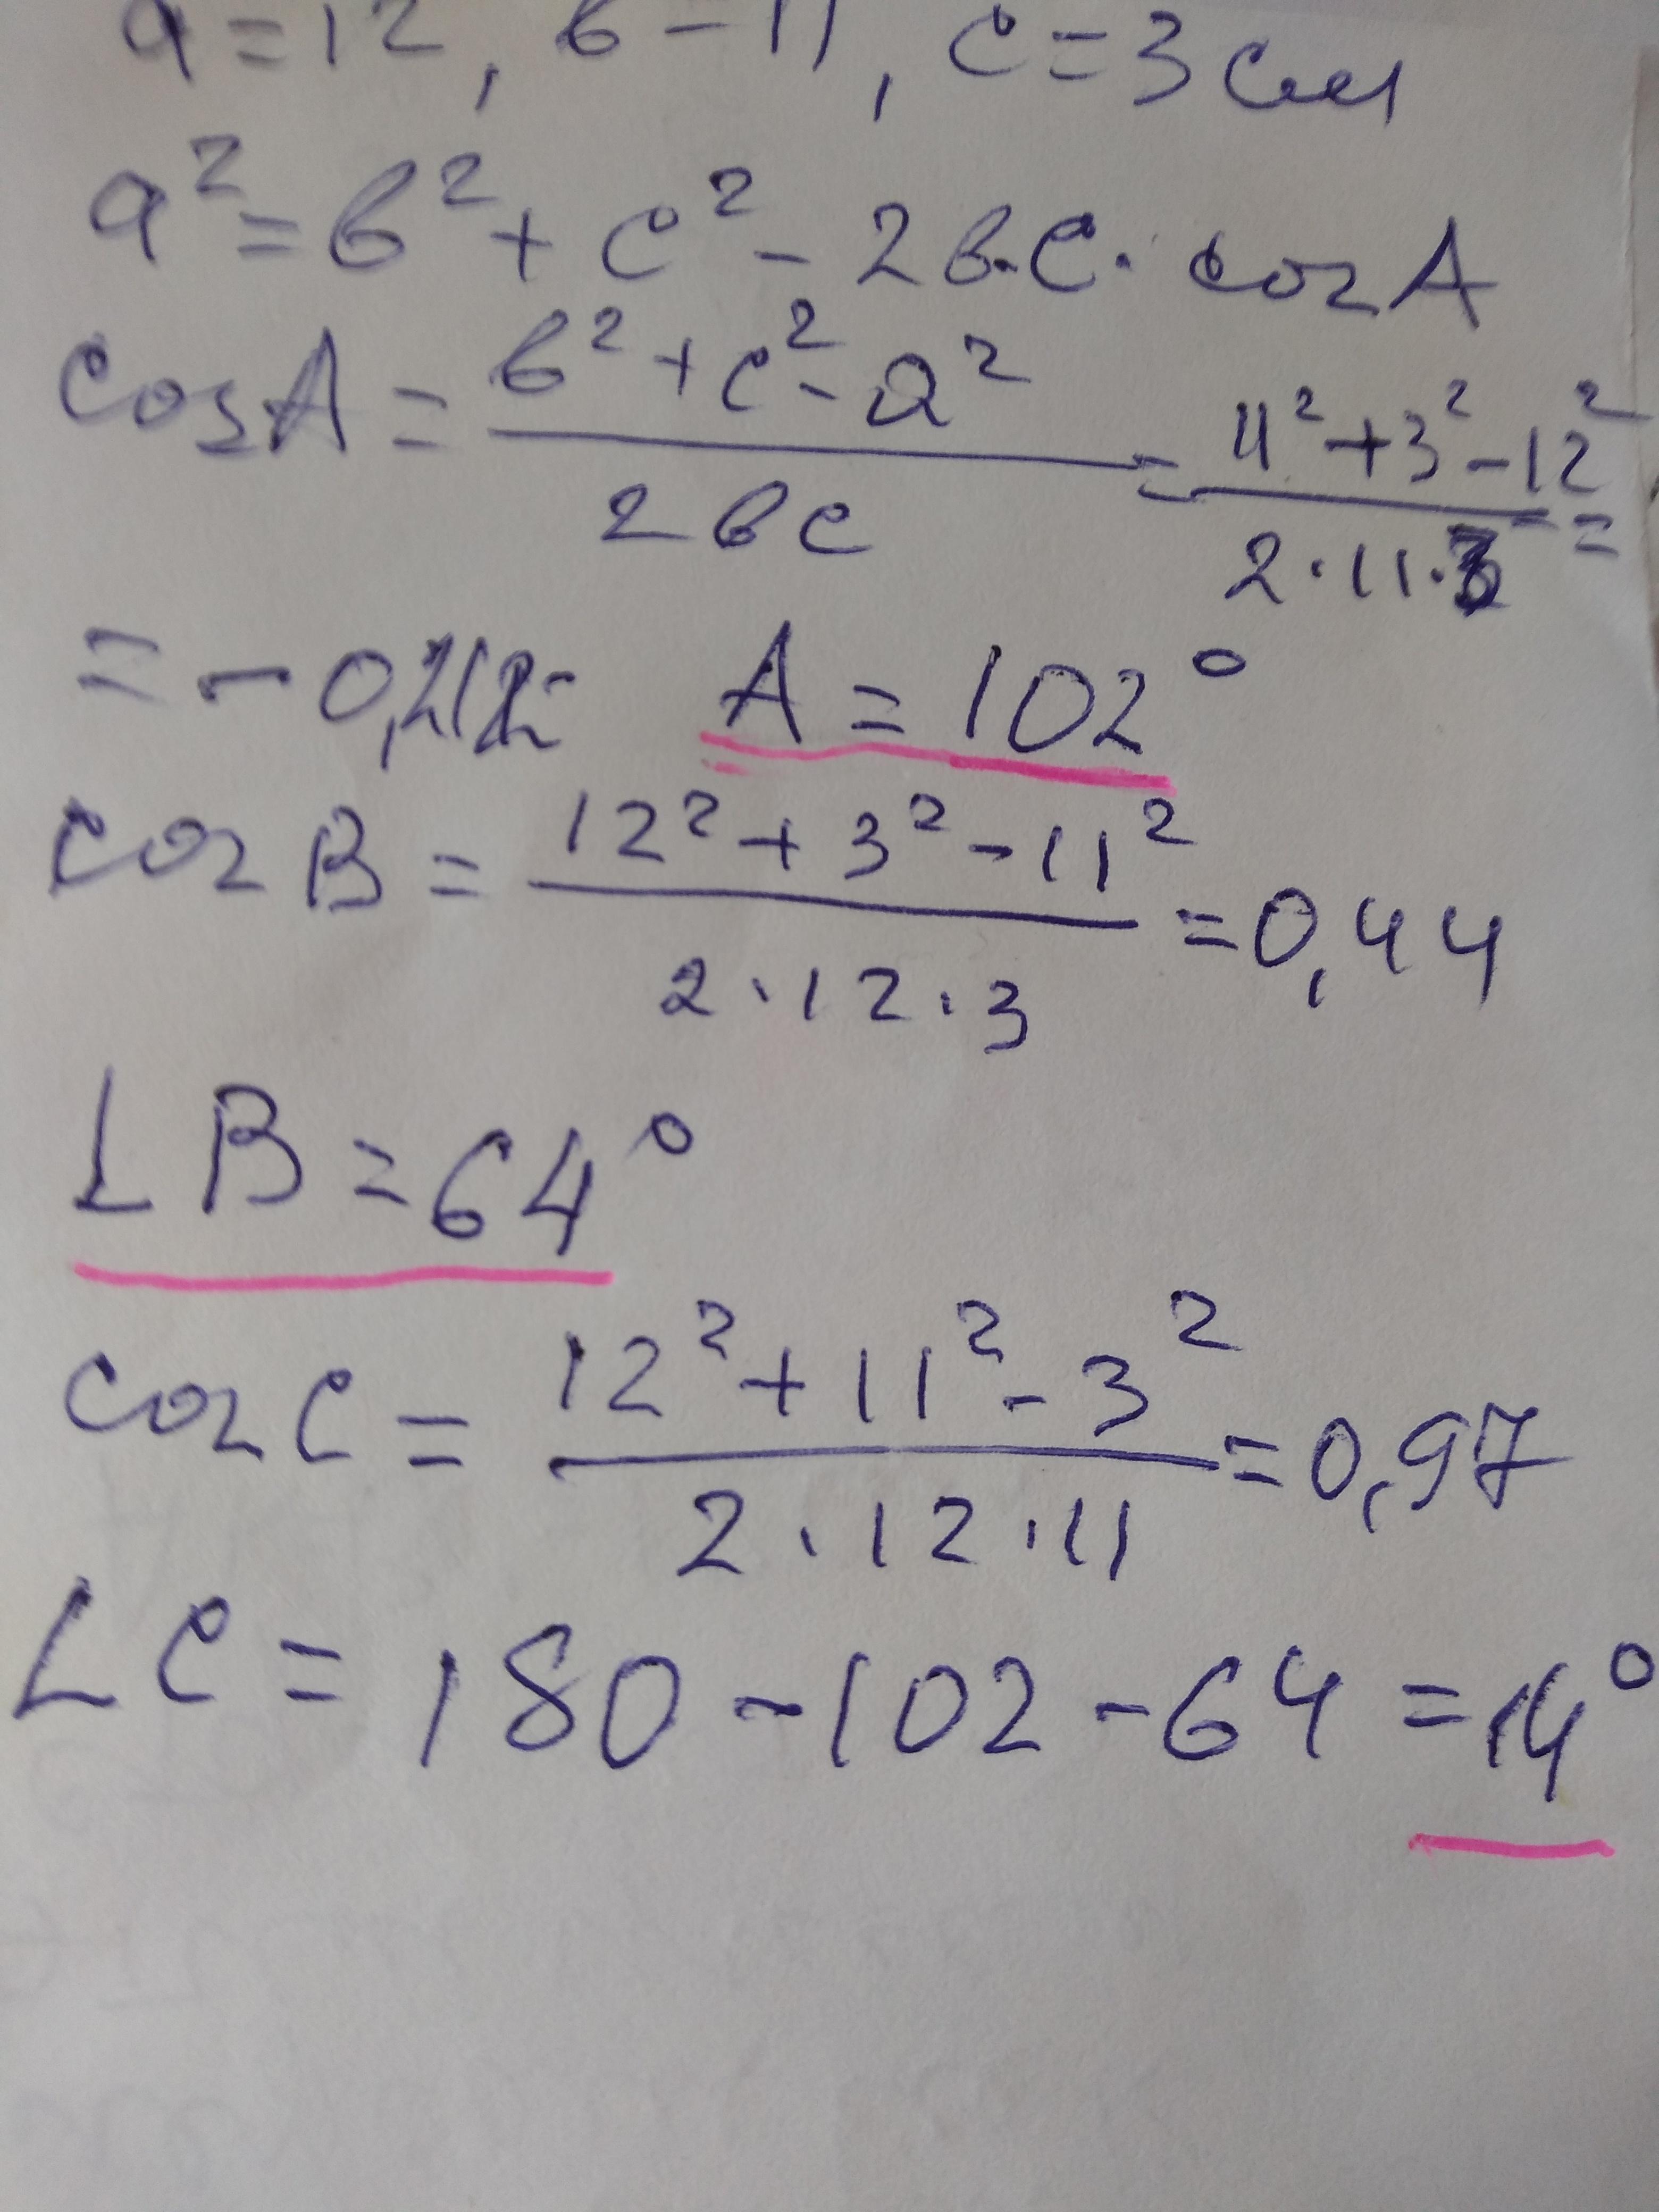 a=12, в-11, c=3см
a²=в²+c²-2в·c·cosA
cosA= (в²+c²-a²)/(2вc) = (11²+3²-12²)/(2·11·3) =
=-0,212 A=102°
cosB= (12²+3²-11²)/(2·12·3) =0,44
∠B=64°
cosC= (12²+11²-3²)/(2·12·11) =0,97
∠C=180-102-64=14°